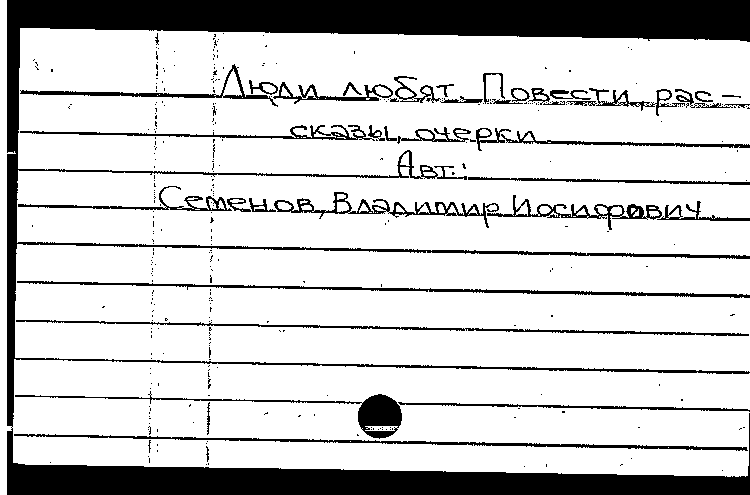 Люди любят. Повести, рас-
сказы, очерки.
Авт.:
Семенов, Владимир Иосифович.